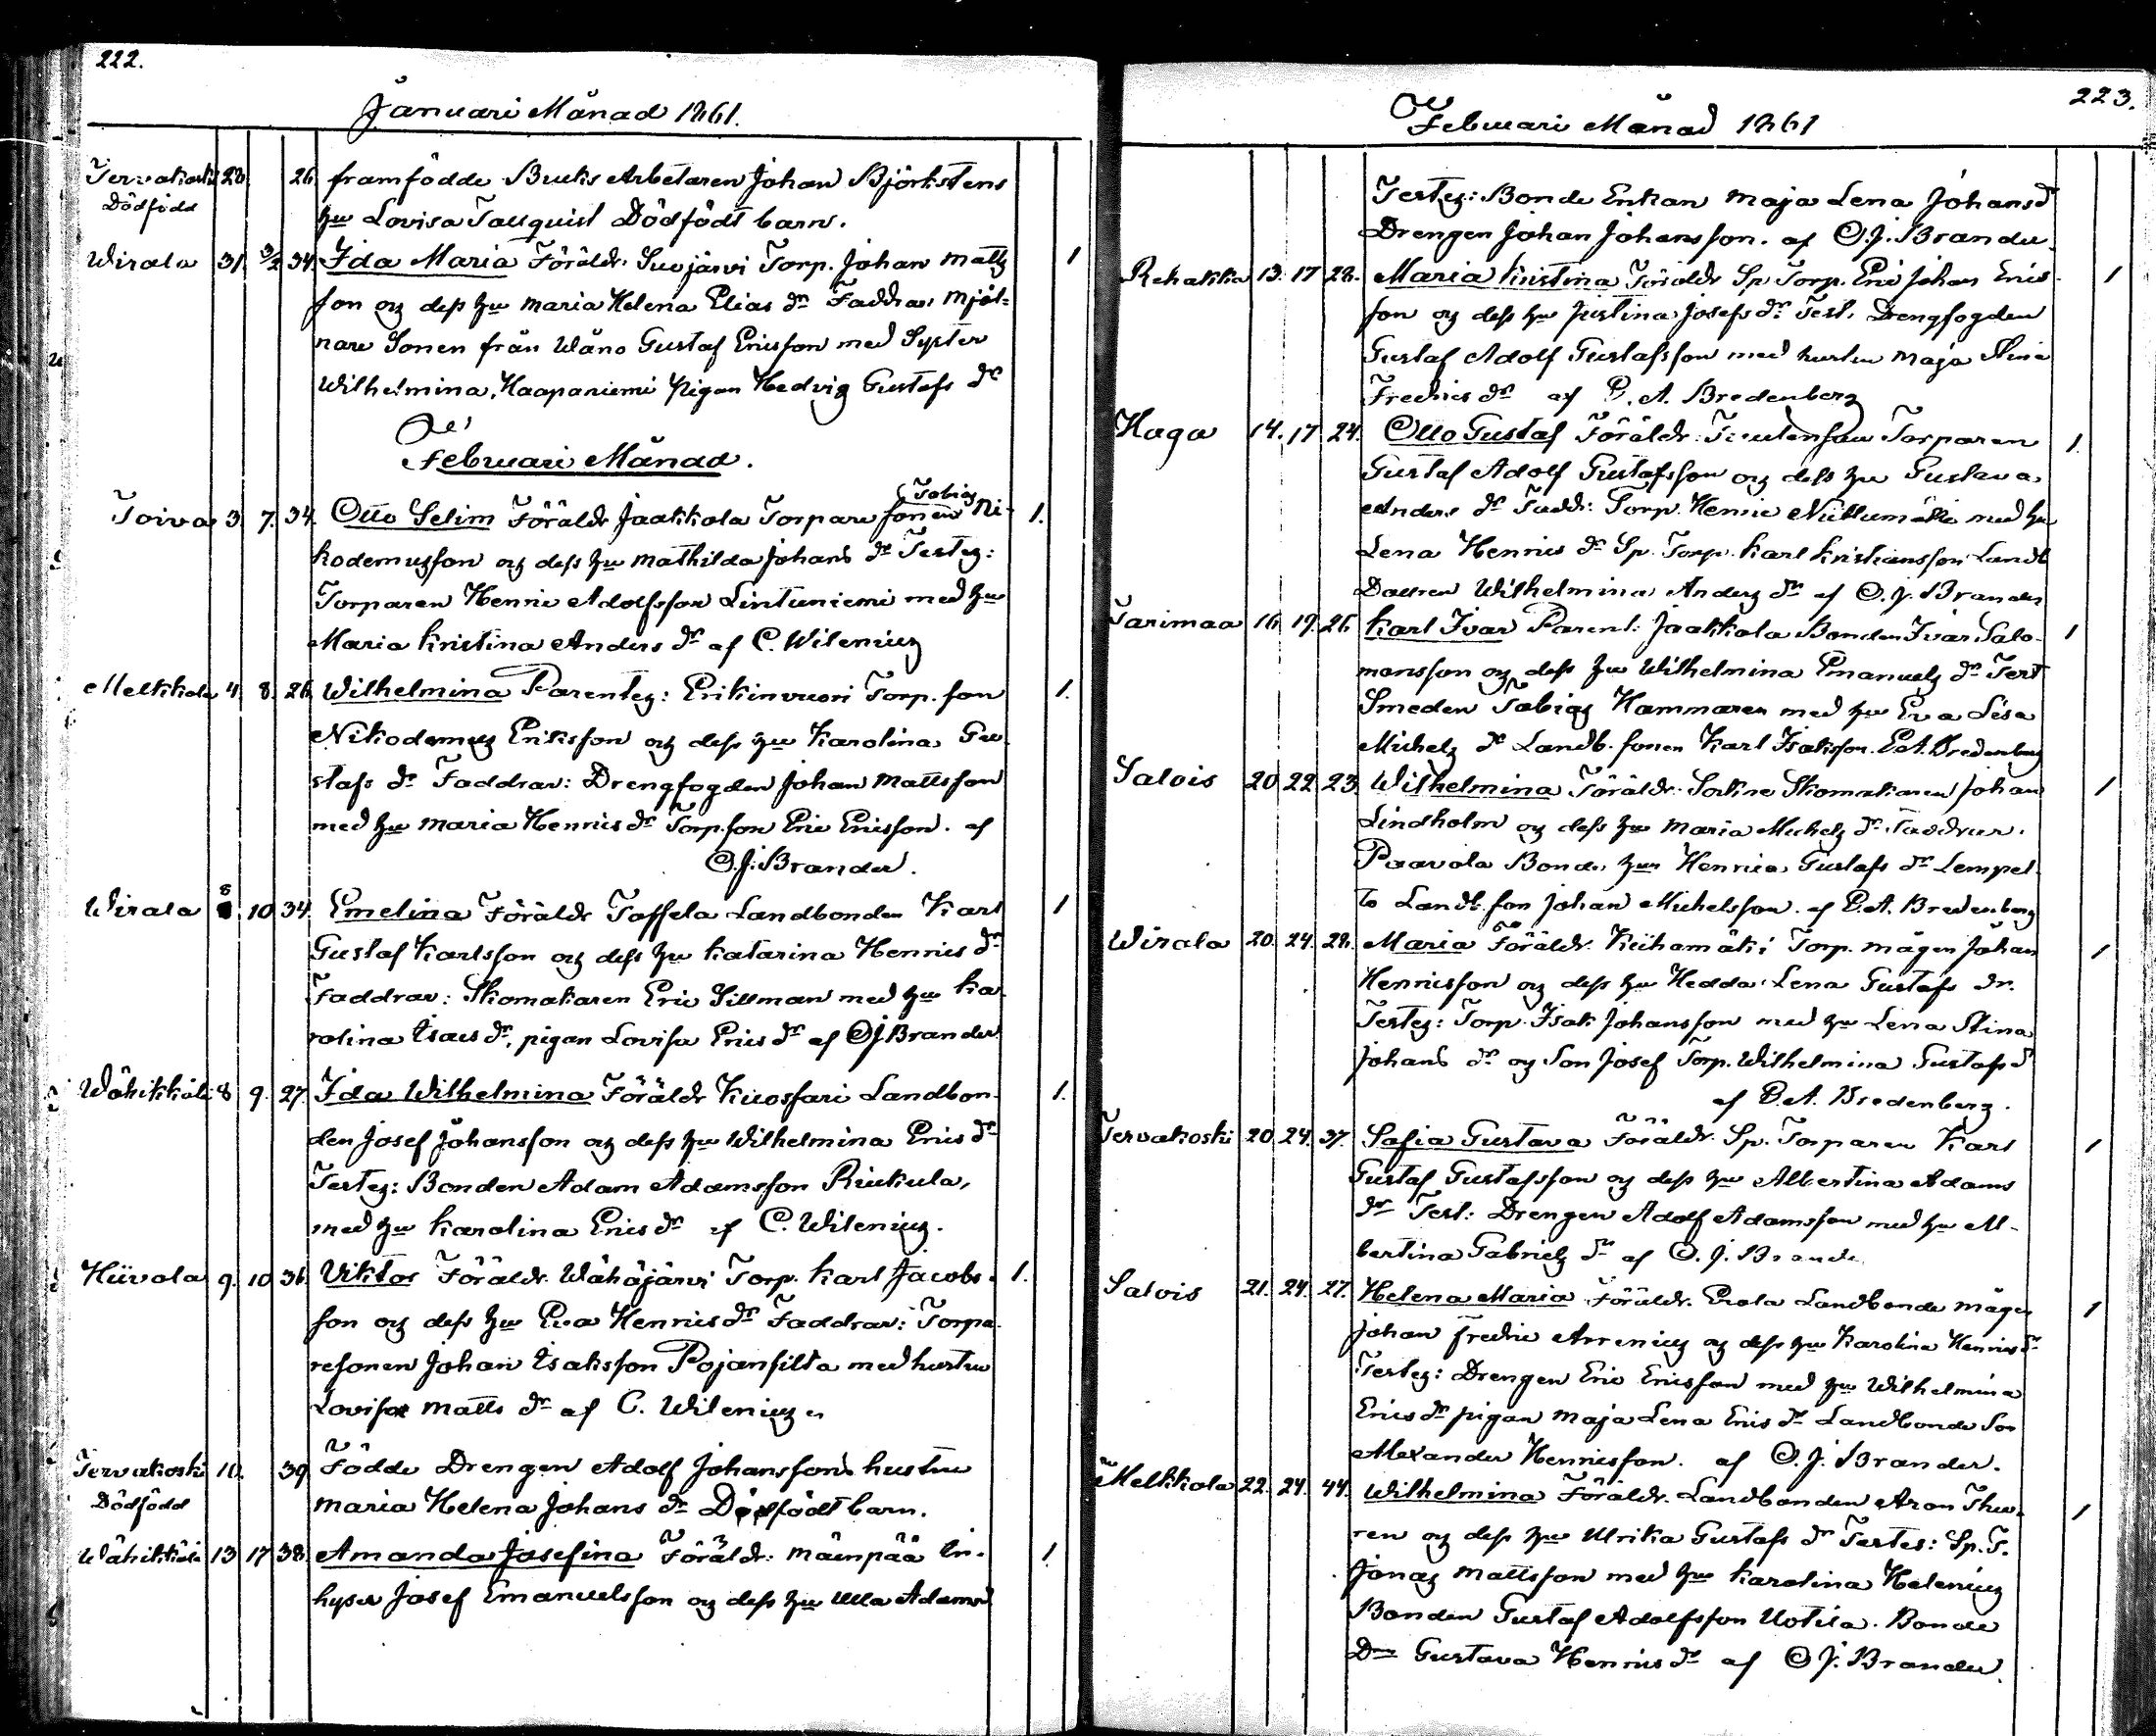 222.
Januari Månad 1861.
Tervakoski 28 26 framfödde Bruks Arbetaren Johan Björkstens
Dödfödd hu Lovisa Tallquist Dödfödt barn.
Wirala 31 3/2 34. Ida Maria Föräldr. Suojärvi Torp. Johan Matts 1
son og dess hu Maria Helena Elias dr Faddrar: Mjöl-
nare Sonen från Wåno Gustaf Ericsson med Syster
Wilhelmina, Haapaniemi Pigan Hedvig Gustafs dr
Februari Månad.
Toivos 3. 7. 34. Otto Selim Föräldr Jaakkola Torpare sonen Tobias Ni- 1.
kodemusson og dess hu Mathilda Johans dr Testes:
Torparen Henric Adolfsson Lintuniemi med hu
Maria Kristina Anders dr af C. Wilenius
Melkkola 4. 8. 26. Wilhelmina Parentes: Erikinvuori Torp. son 1.
Nikodemus Eriksson og dess hu Karolina Gu-
stafs dr Faddrar: Drengfogden Johan Mattsson
med hu Maria Henrics dr Torp. son Eric Ericsson. af
O. J. Brander.
Wirala 8 10 34. Emelina Föräldr Toffela Landbonden Karl 1
Gustaf Karlsson og dess hu Katarina Henrics dr
Faddrar: Skomakaren Eric Sillman med hu Ka-
rolina Isacs dr, pigan Lovisa Erics dr af O J Brander
Wähikkälä 8 9. 27. Ida Wilhelmina Föräldr Kuosfari Landbon- 1.
den Josef Johansson og dess hu Wilhelmina Erics dr
Testes: Bonden Adam Adamsson Riukula,
med hu Karolina Erics dr af C. Wilenius.
Hiivola 9. 10 36. Viktor Föräldr. Wähäjärvi Torp. Karl Jacobs- 1.
son og dess hu Eva Henrics dr Faddrar: Torpa-
resonen Johan Isaksson Pojansilta med hustru
Lovisa Matts dr af C. Wilenius
Tervakoski 10. 39 Födde Drengen Adolf Johanssons hustru
Dödfödd Maria Helena Johans dr Dödfödt barn.
Wähikkälä 13 17 38. Amanda Josefina Föräldr: Mäenpää In- 1
hyses Josef Emanuelsson og dess hu Ulla Adamsd
223.
Februari Månad 1861
Testes: Bonde Enkan Maja Lena Johansd
Drengen Johan Johansson. af O. J. Brander.
Rehakka 13. 17 28. Maria Kristina Föräldr Sp. Torp. Eric Johan Erics- 1
son og dess hu Justina Josefs dr. Test. Drengfogden
Gustaf Adolf Gustafsson med hustru Maja Stina
Fredrics dr af P. A. Bredenberg
Haga 14. 17 24. Otto Gustaf Föräldr: Torparen 1.
Gustaf Adolf Gustafsson og dess hu Gustava
Anders dr Fadd: Torp. Henric Niittumäki med hu
Lena Henrics dr Sp. Torp. Karl Kristiansson Landb
Dottren Wilhelmina Anders dr af O. J. Brander
Tarimaa 16. 19. 26. Karl Ivar Parent: Jaakkola Bonden Ivar Salo- 1
monsson og dess hu Wilhelmina Emanuels dr Test
Smeden Tobias Hammaren med hu Eva Lisa
Michels dr Landb. sonen Karl Isaksson. P. A. Bredenberg
Salois 20 22 23. Wilhelmina Föräldr. Sokne Skomakaren Johan 1
Lindholm og dess hu Maria Michels dr. Faddrar.
Paavola Bonde hun Henrica Gustafs dr Lempel-
to Landb. son Johan Michelsson. af P. A. Bredenberg
Wirala 20. 24. 28. Maria Föräldr. Kiihamäki Torp. mågen Johan 1
Henricsson og dess hu Hedda Lena Gustafs dr.
Testes: Torp. Isak Johansson med hu Lena Stina
Johans dr og Son Josef Torp. Wilhelmina Gustafs d
af P. A. Bredenberg.
Tervakoski 20. 24. 37. Sofia Gustava Föräldr. Sp. Torparen Karl 1
Gustaf Gustafsson og dess hu Albertina Adams
dr Test: Drengen Adolf Adamsson med hu Al-
bertina Gabriels dr af O. J. Brande
Salois 21. 24. 27. Helena Maria Föräldr. Erola Landbonde mågen 1
Johan Fredric Arrenius og dess hu Karolina Henrics dr
Testes: Drengen Eric Ericsson med hu Wilhelmina
Erics dr pigan Maja Lena Erics dr Landbonde Son
Alexander Henricsson. af O. J. Brander.
Melkkola 22. 24. 44. Wilhelmina Föräldr. Landbonden Aron Thu- 1
ren og dess hu Ulrika Gustafs dr Testes: Sp. T.
Jonas Mattsson med hu Karolina Helenius
Bonden Gustaf Adolfsson Uotila. Bonde
Dr Gustava Henrics dr af O J. Brander.